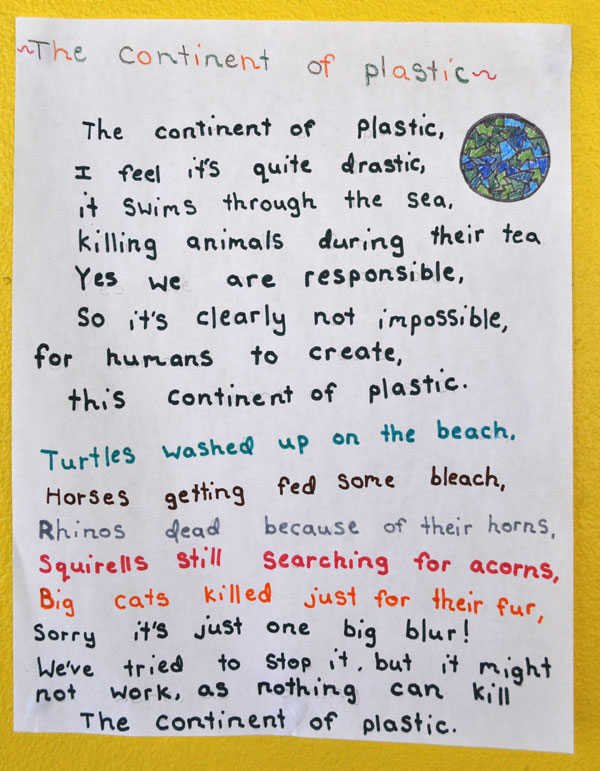 ~The continent of plastic~
The continent of plastic,
I feel it's quite drastic,
it swims through the sea,
killing animals during their tea
Yes we are responsible,
So it's clearly not impossible,
for humans to create,
this continent of plastic.
Turtles washed up on the beach,
Horses getting fed some bleach,
Rhinos dead because of their horns,
Squirells still searching for acorns,
Big cats killed just for their fur,
Sorry it's just one big blur!
We've tried to stop it, but it might
not work, as nothing can kill
The continent of plastic.